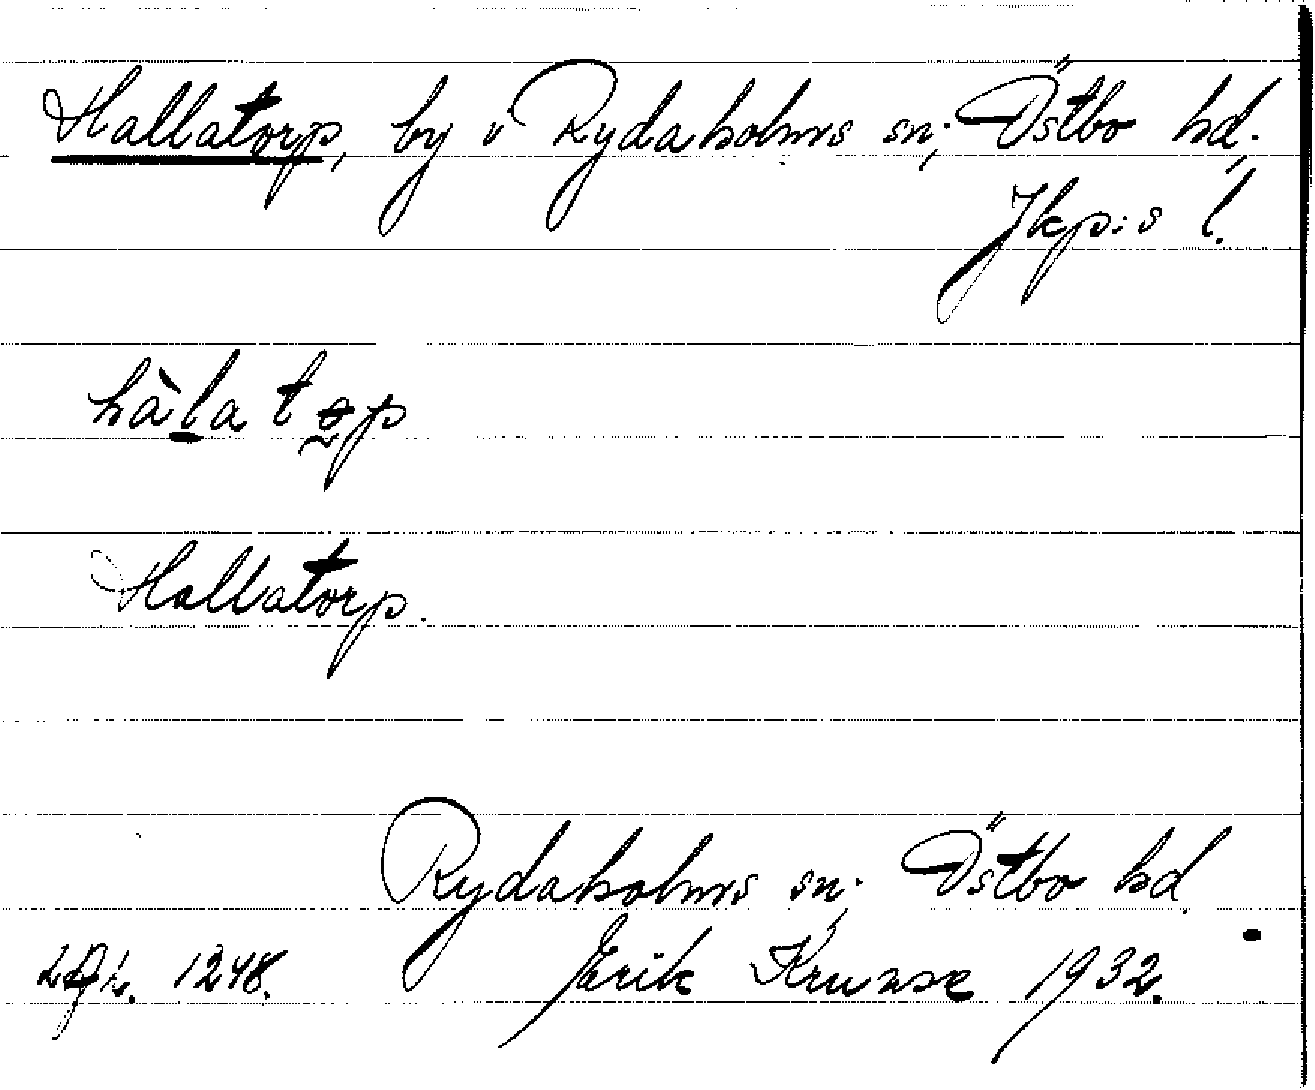 Hallatorp, by i Rydaholms sn; Östbo hd;
Jkp:s l.
hàla tǫp
Hallatorp.
Rydaholms sn; Östbo hd.
1248. Erik Krunse 1932.